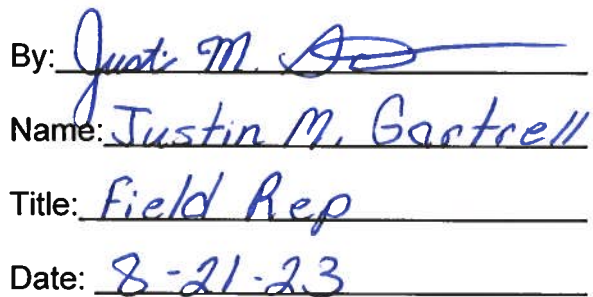 By: Justi M.
Name: Justin M. Gartrell
Title: Field Rep
Date: 8-21-23